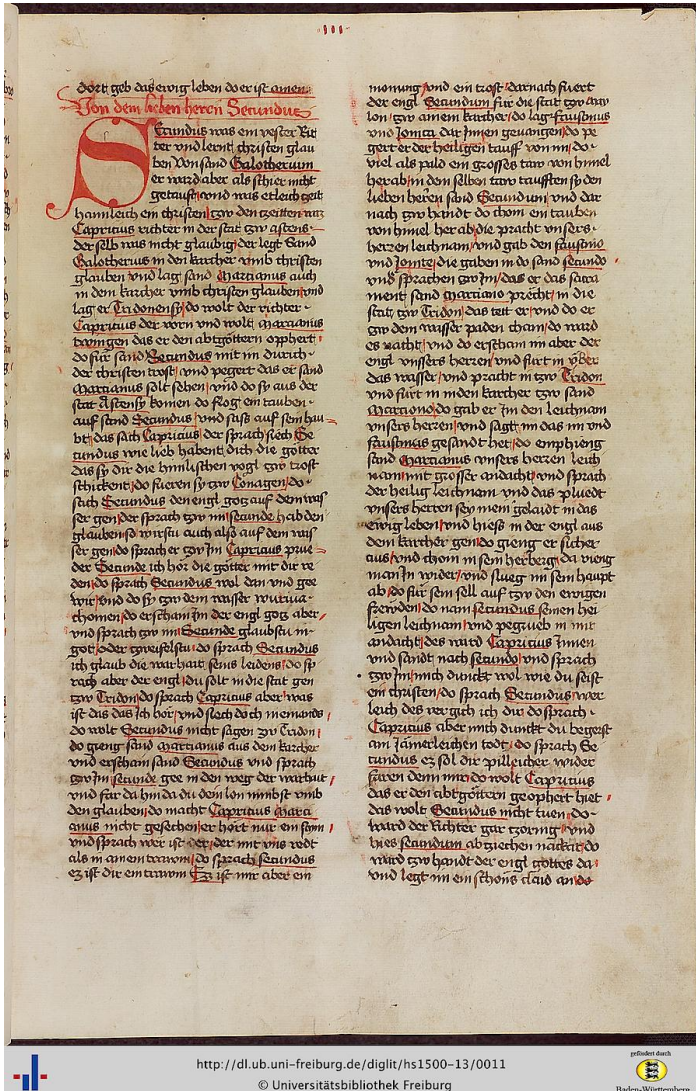 .III.
dort geb das ewig leben do er ist amen
Von dem lieben herrn Secundus
Secundus was ein vester Rit
ter vnd lernt christen glau
ben von sand Galotherium
er ward aber als schier nicht
getaufft vnd was etleich zeit
hannleich ein christen tzw den zeitten was
Capricius richter in der stat tzw astens
der selb was nicht glaubig der legt Sand
Galotherius in den karcher vmb christen
glauben vnd lag sand Marcianus auch
in dem karcher vmb christen glauben vnd
lag er Tridonensy do wolt der richter
Capricius der vorn vnd wolt Marcianus
twingen das er den abtgöttern opphert
do für sand Secundus mit im durich
der christen trost vnd pegert das er sand
Marcianus solt sehen vnd do sy aus der
stat Astensy komen do flog ein tauben
auf sand Secundus vnd sass auf sein hau
bt das sach Capricius der sprach siech Se
cundus wie lieb habent dich die götter
das sy dir die himlischen vogl tzw trost
schickent do fueren sy tzw Conagen do
sach Secundus den engl gotz auf dem was
ser gen der sprach tzw im secunde hab den
glauben so wirstu auch also auf dem was
ser gen do sprach er tzw Im Capricius prue
der Secunde ich hör die götter mit dir re
den do sprach Secundus wol dan vnd gee
wir vnd do sy tzw dem wasser wuriua
chomen do erscham Im der engl gotz aber
vnd sprach tzw im Secunde glaubstu in
got oder zweifelstu do sprach Secundus
ich glaub die warhait seins leidens do sp
rach aber der engl du solt in die stat gen
tzw Tridon do sprach Capricius aber was
ist das das ich hör vnd siech doch niemands
do wolt Secundus nicht sagen zw Tridon
do gieng sand Marcianus aus dem karcher
vnd erscham sand Secundus vnd sprach
tzw Im secunde gee in den weg der warhait
vnd far da hin da du dein lon nimbst vmb
den glauben do macht Capricius Marci
anus nicht gesechen er hort nur ein stym
vnd sprach wer ist der der mit vns redt
als in ainem trawm do sprach secundus
ez ist dir ein trawm Ez ist mir aber ein
monung vnd ein trost darnach fuert
der engl Secundum für die stat tzw may
lon tzw ainem karcher do lag faustinus
vnd Jonita dar Innen geuangen do pe
gert er der heiligen tauff von im do
viel als pald ein grosses taw von himel
her ab in dem selben taw taufften sy den
lieben herrn sand Secundum vnd dar
nach tzw handt do chom ein tauben
von himel her ab die pracht vnsers
herren leichnam vnd gab den faustino
vnd Jonite die gaben in do sand secundo
vnd sprachen tzw Im das er das sacra
ment sand Marciano precht in die
stat tzw Tridon das tett er vnd do er
tzw dem wasser paden cham do ward
es nacht vnd do erscham im aber der
engl vnsers herren vnd fürt in vber
das wasser vnd pracht in tzw Tridon
vnd fürt in in den karcher tzw sand
Marciano do gab er Im den leichnam
vnsers herren vnd sagt im das im vnd
faustinus gesandt het do emphieng
sand Marcianus vnsers herren leich
nam mit grosser andacht vnd sprach
der heilig leichnam vnd das pluedt
vnsers herren sey mein gelaidt in das
ewig leben vnd hiess in der engl aus
dem karcher gen do gieng er sicher
cius vnd chom in sein herberg da vieng
man In wider vnd slueg im sein haupt
ab do für sein sell auf tzw den ewigen
frewden do nam secundus seinen hei
ligen leichnam vnd pegrueb in mit
andacht des ward Capricius Innen
vnd sandt nach secundo vnd sprach
tzw Im mich dunckt wol wie du seist
ein christen do sprach Secundus wer
leich des ver gich ich dir do sprach
Capricius aber mich dunckt du begerst
ain Jämerleichen todt do sprach Se
cundus ez sol dir pilleicher wider
faren denn mir do wolt Capricius
das er den abtgöttern geophert hiet
das wolt Secundus nicht tuen do
ward der richter gar tzornig vnd
hies secundum ab tziechen nackat do
ward tzw handt der engl gottes da
vnd legt im ein schons claid an do
http://dl.ub.uni-freiburg.de/diglit/hs1500-13/0011
© Universitätsbibliothek Freiburg
gefördert durch
Baden-Württemberg